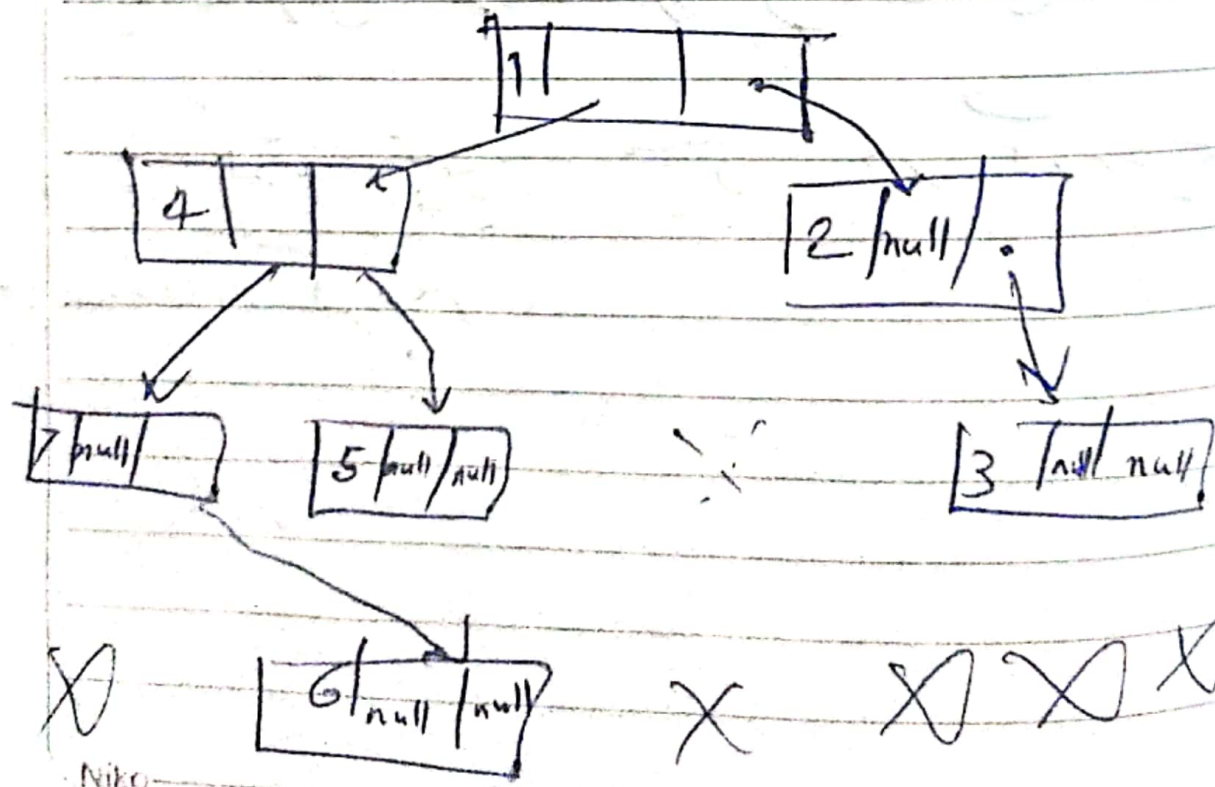 1
4
2 null .
7 null
5 null null
3 null null
6 null null
X X X X X
Niko